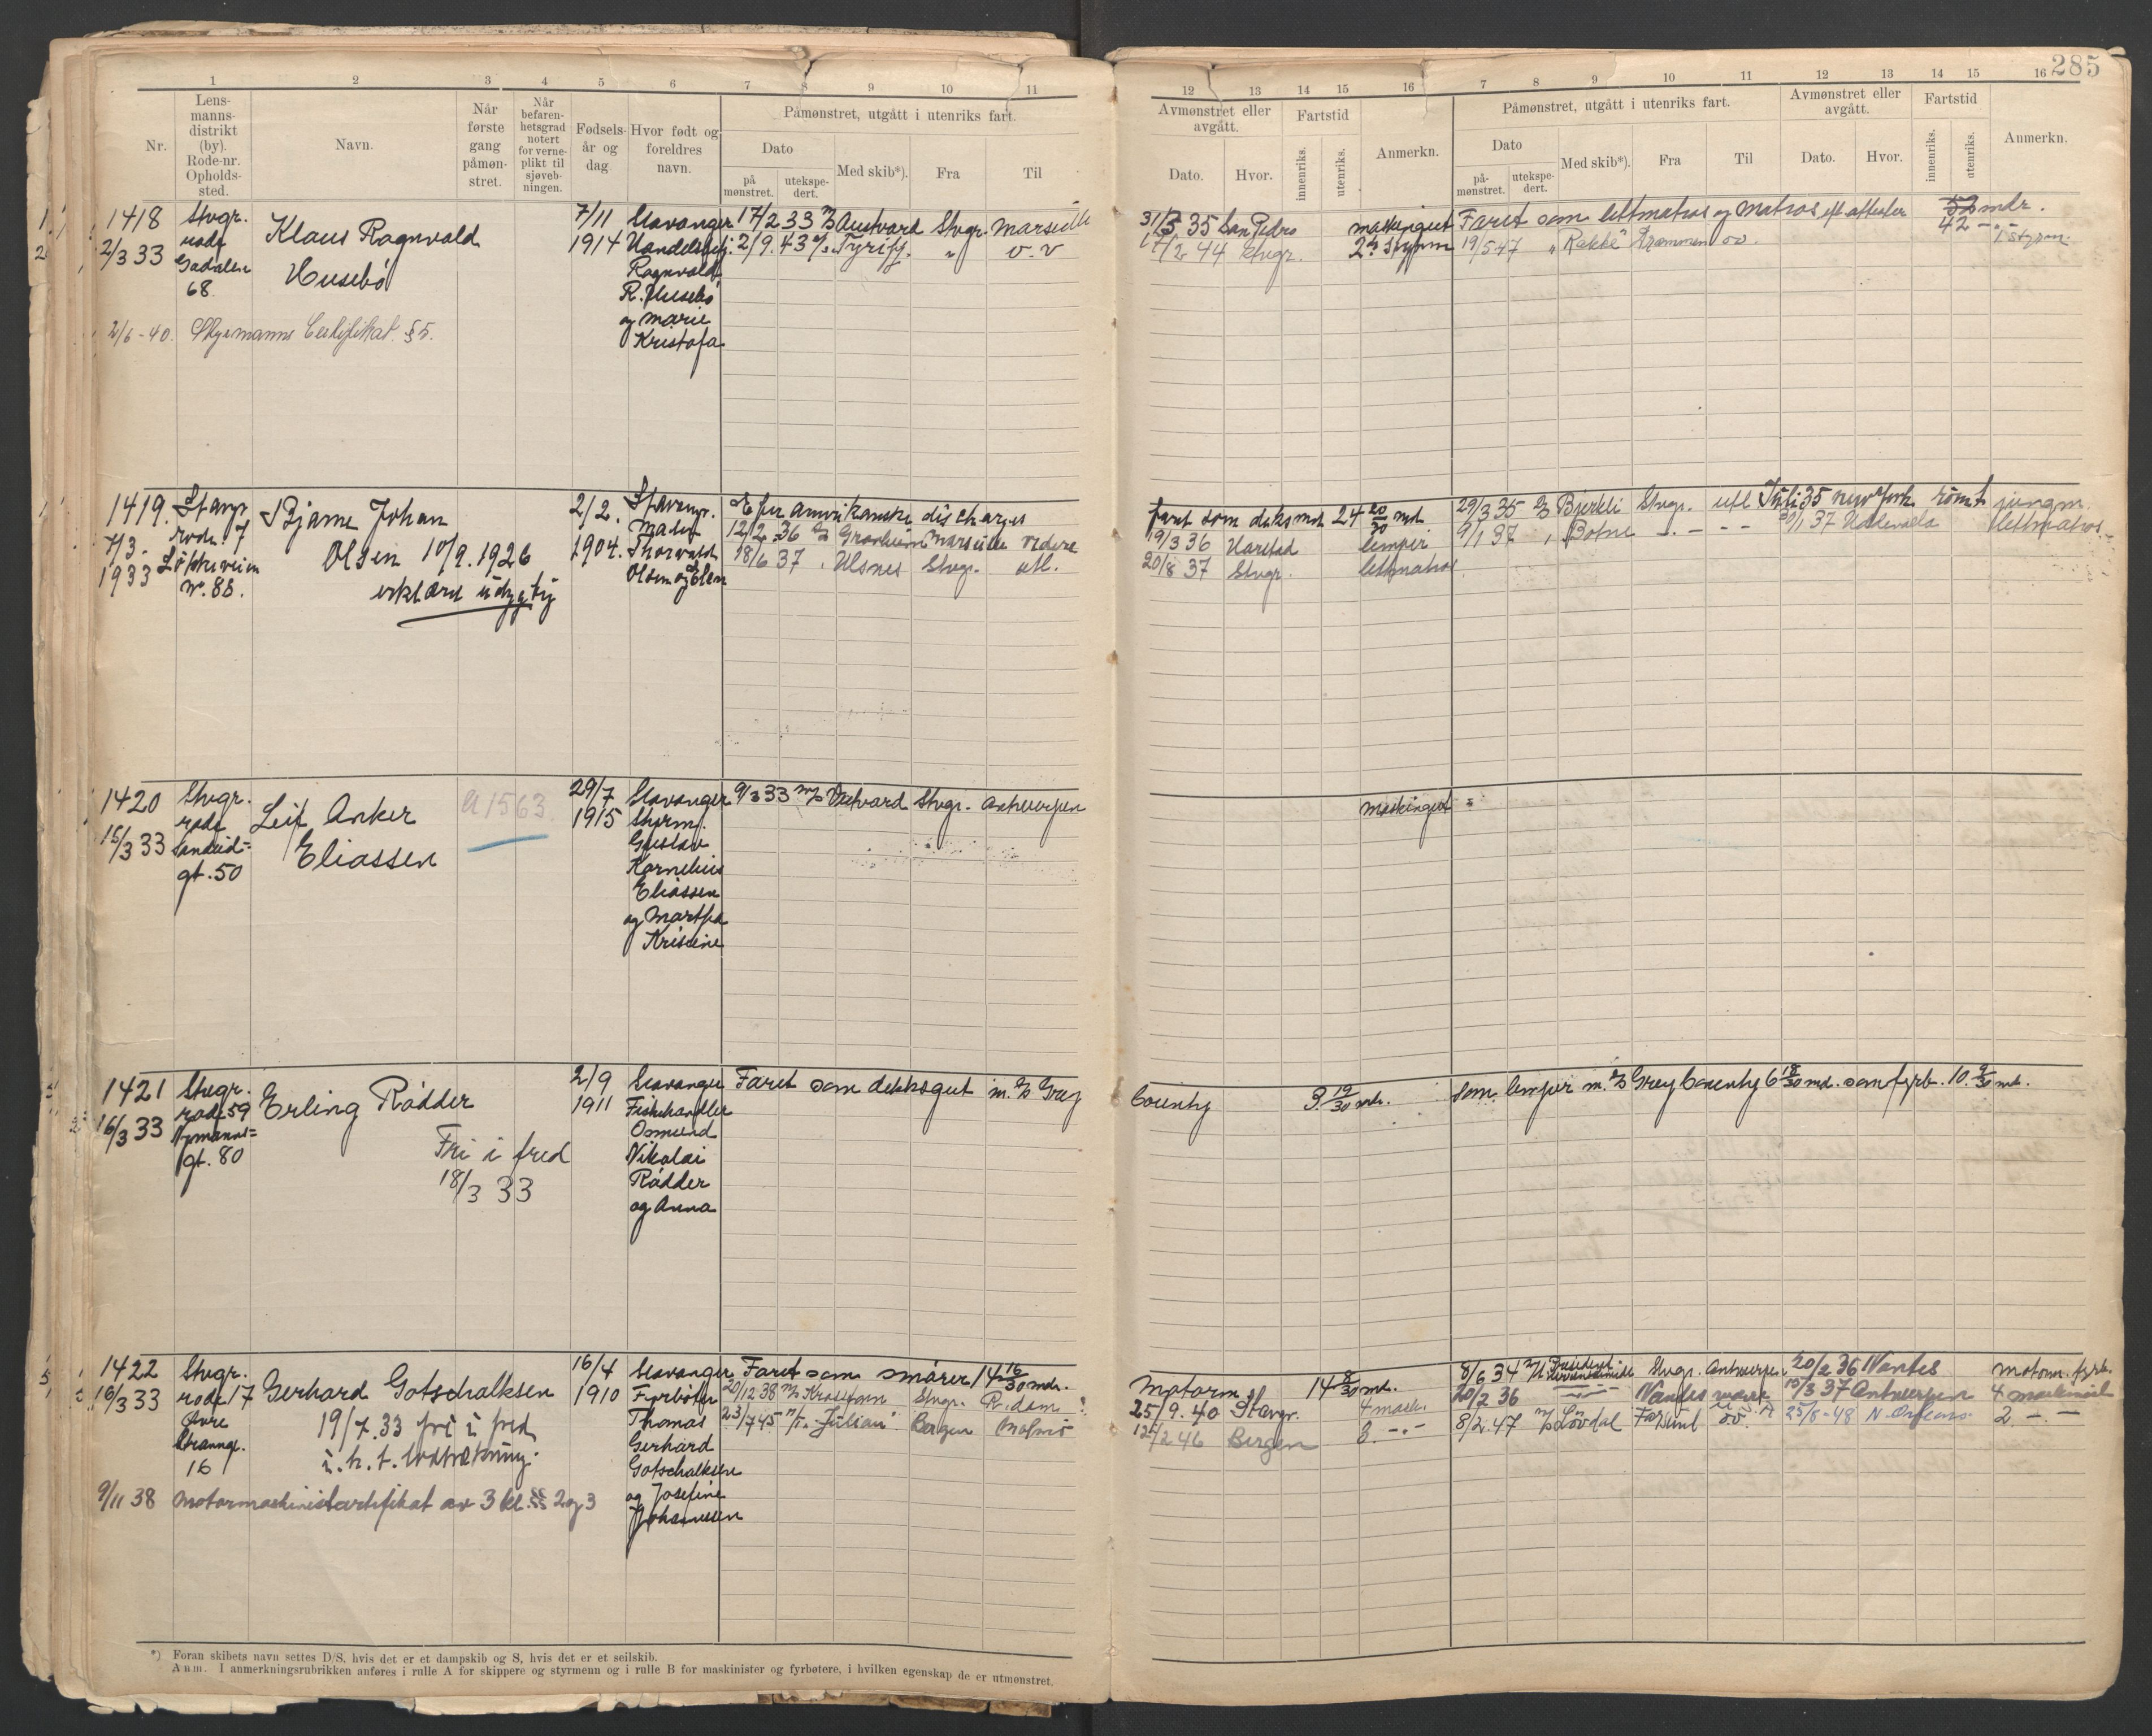 285
1 2 3 4 5 6 7 8 9 10 11
Nr.
Lens-
manns-
distrikt
(by).
Rode-nr.
Opholds-
sted.
Navn.
Når
første
gang
påmøn-
stret.
Når
befaren-
hetsgrad
notert
for verne-
plikt til
sjøveb-
ningen.
Fødsels-
år og
dag
Hvor født og
foreldres
navn.
Påmønstret, utgått i utenriks fart.
Dato
på
mønstret.
utekspe-
dert.
Med skib*).
Fra
Til
12 13 14 15 16 7 8 9 10 11 12 13 14 15 16
Avmønstret eller
avgått.
Dato.
Hvor.
Fartstid
innenriks.
utenriks.
Anmerkn.
Påmønstret, utgått i utenriks fart.
Dato
på-
mønstret.
utekspe-
dert.
Med skib*).
Fra
Til
Avmønstret eller
avgått.
Dato.
Hvor.
Fartstid
innenriks.
utenriks.
Anmerkn.
1418
2/3 33
Stvgr.
rode
68
Klaus Ragnvald
Husebø
7/11
1914
Stavanger
Ragnvald
R. Husebø
og Marie
Kristofa
17/2 33 Austvard Stvgr. Marseille
2/9. 43 Tyrifj. " v. v
31/3 35 San Pedro maskingutt
17/2 44 Stvgr. 2. styrm
Faret som lettmatros og Matros eft. attester 53 mdr.
42 -
19/5 47 "Rakke" Drammen oo. 1 styrm.
2/6-40. Styrmanns Certifikat. §5.
1419.
7/3.
1933
Stavgr.
rode. 7
nr. 88.
Bjarne Johan
Olsen 10/9. 1926
erklært udygtig
2/2.
1904.
Stavangr.
Thorvald
Olsen og Elen
Efter amerikanske discharges
12/2 36 Marseille videre
18/6 37 Ulsnes Stvgr. utl.
faret som deksmd. 24 20/30 md.
19/3 36 Harstad lemper
20/8 37 Stvgr. lettmatros
29/3 35 Bjerkli Stvgr. utl Juli 35 New York rømt jungm.
9/1 37 Botne 30/1 37 Uddevalla lettmatros
1420
15/3 33
Stvgr.
rode
gt. 50
Leif Anker
Eliassen
A 1563
29/7
1915
Stavanger
Styrm.
Gustav
Kornelius
Eliassen
og Martha
Kristine
9/3 33 Vestvard Stvgr. Antwerpen
maskingutt
1421
16/3 33
Stvgr.
rode 59
Nymanns=
gt. 80
Erling Rådder
Fri i fred
18/3 33
2/9
1911
Stavanger
Fiskehandler
Osmund
Nikolai
Rådder
og Anna
Faret som dekksgut m. Grey
County 3 19/30 mdr.
som lemper m. Grey County 6 18/30 md. som fyrb. 10. 9/30 md.
1422
16/3 33
Stvgr.
rode 17
Øvre
Strandgt.
16
Gerhard Gotschalksen
19/7. 33 fri i fred
i. h. t. lodtrækning.
16/4
1910
Stavanger
Fyrbøter
Thomas
Gerhard
Gotschalksen
og Josefine
Johannesen
Faret som smører 14 16/30 mdr.
20/12 38 Stvgr. R.dam
23/7 45 Julian Bergen Malmø
Motorm. 14 8/30 md.
25/9. 40 Stavgr. 4 mask.
12/2 46 Bergen 3. -.-
8/6 34 Stvgr. Antwerpen 20/2 36 Nantes motorm. fyrb.
20/2 36 Nantes 15/3 37 Antwerpen 4 maskinist
8/2. 47 Farsund 25/8-48 N. Orleans 2. -.-
9/11 38 motormaskinistcertifikat av 3 kl. §§ 2 og 3
*) Foran skibets navn settes D/S, hvis det er et dampskib og S, hvis det er et seilskib.
Anm. I anmerkningsrubrikken anføres i rulle A for skippere og styrmenn og i rulle B for maskinister og fyrbøtere, i hvilken egenskap de er utmønstret.